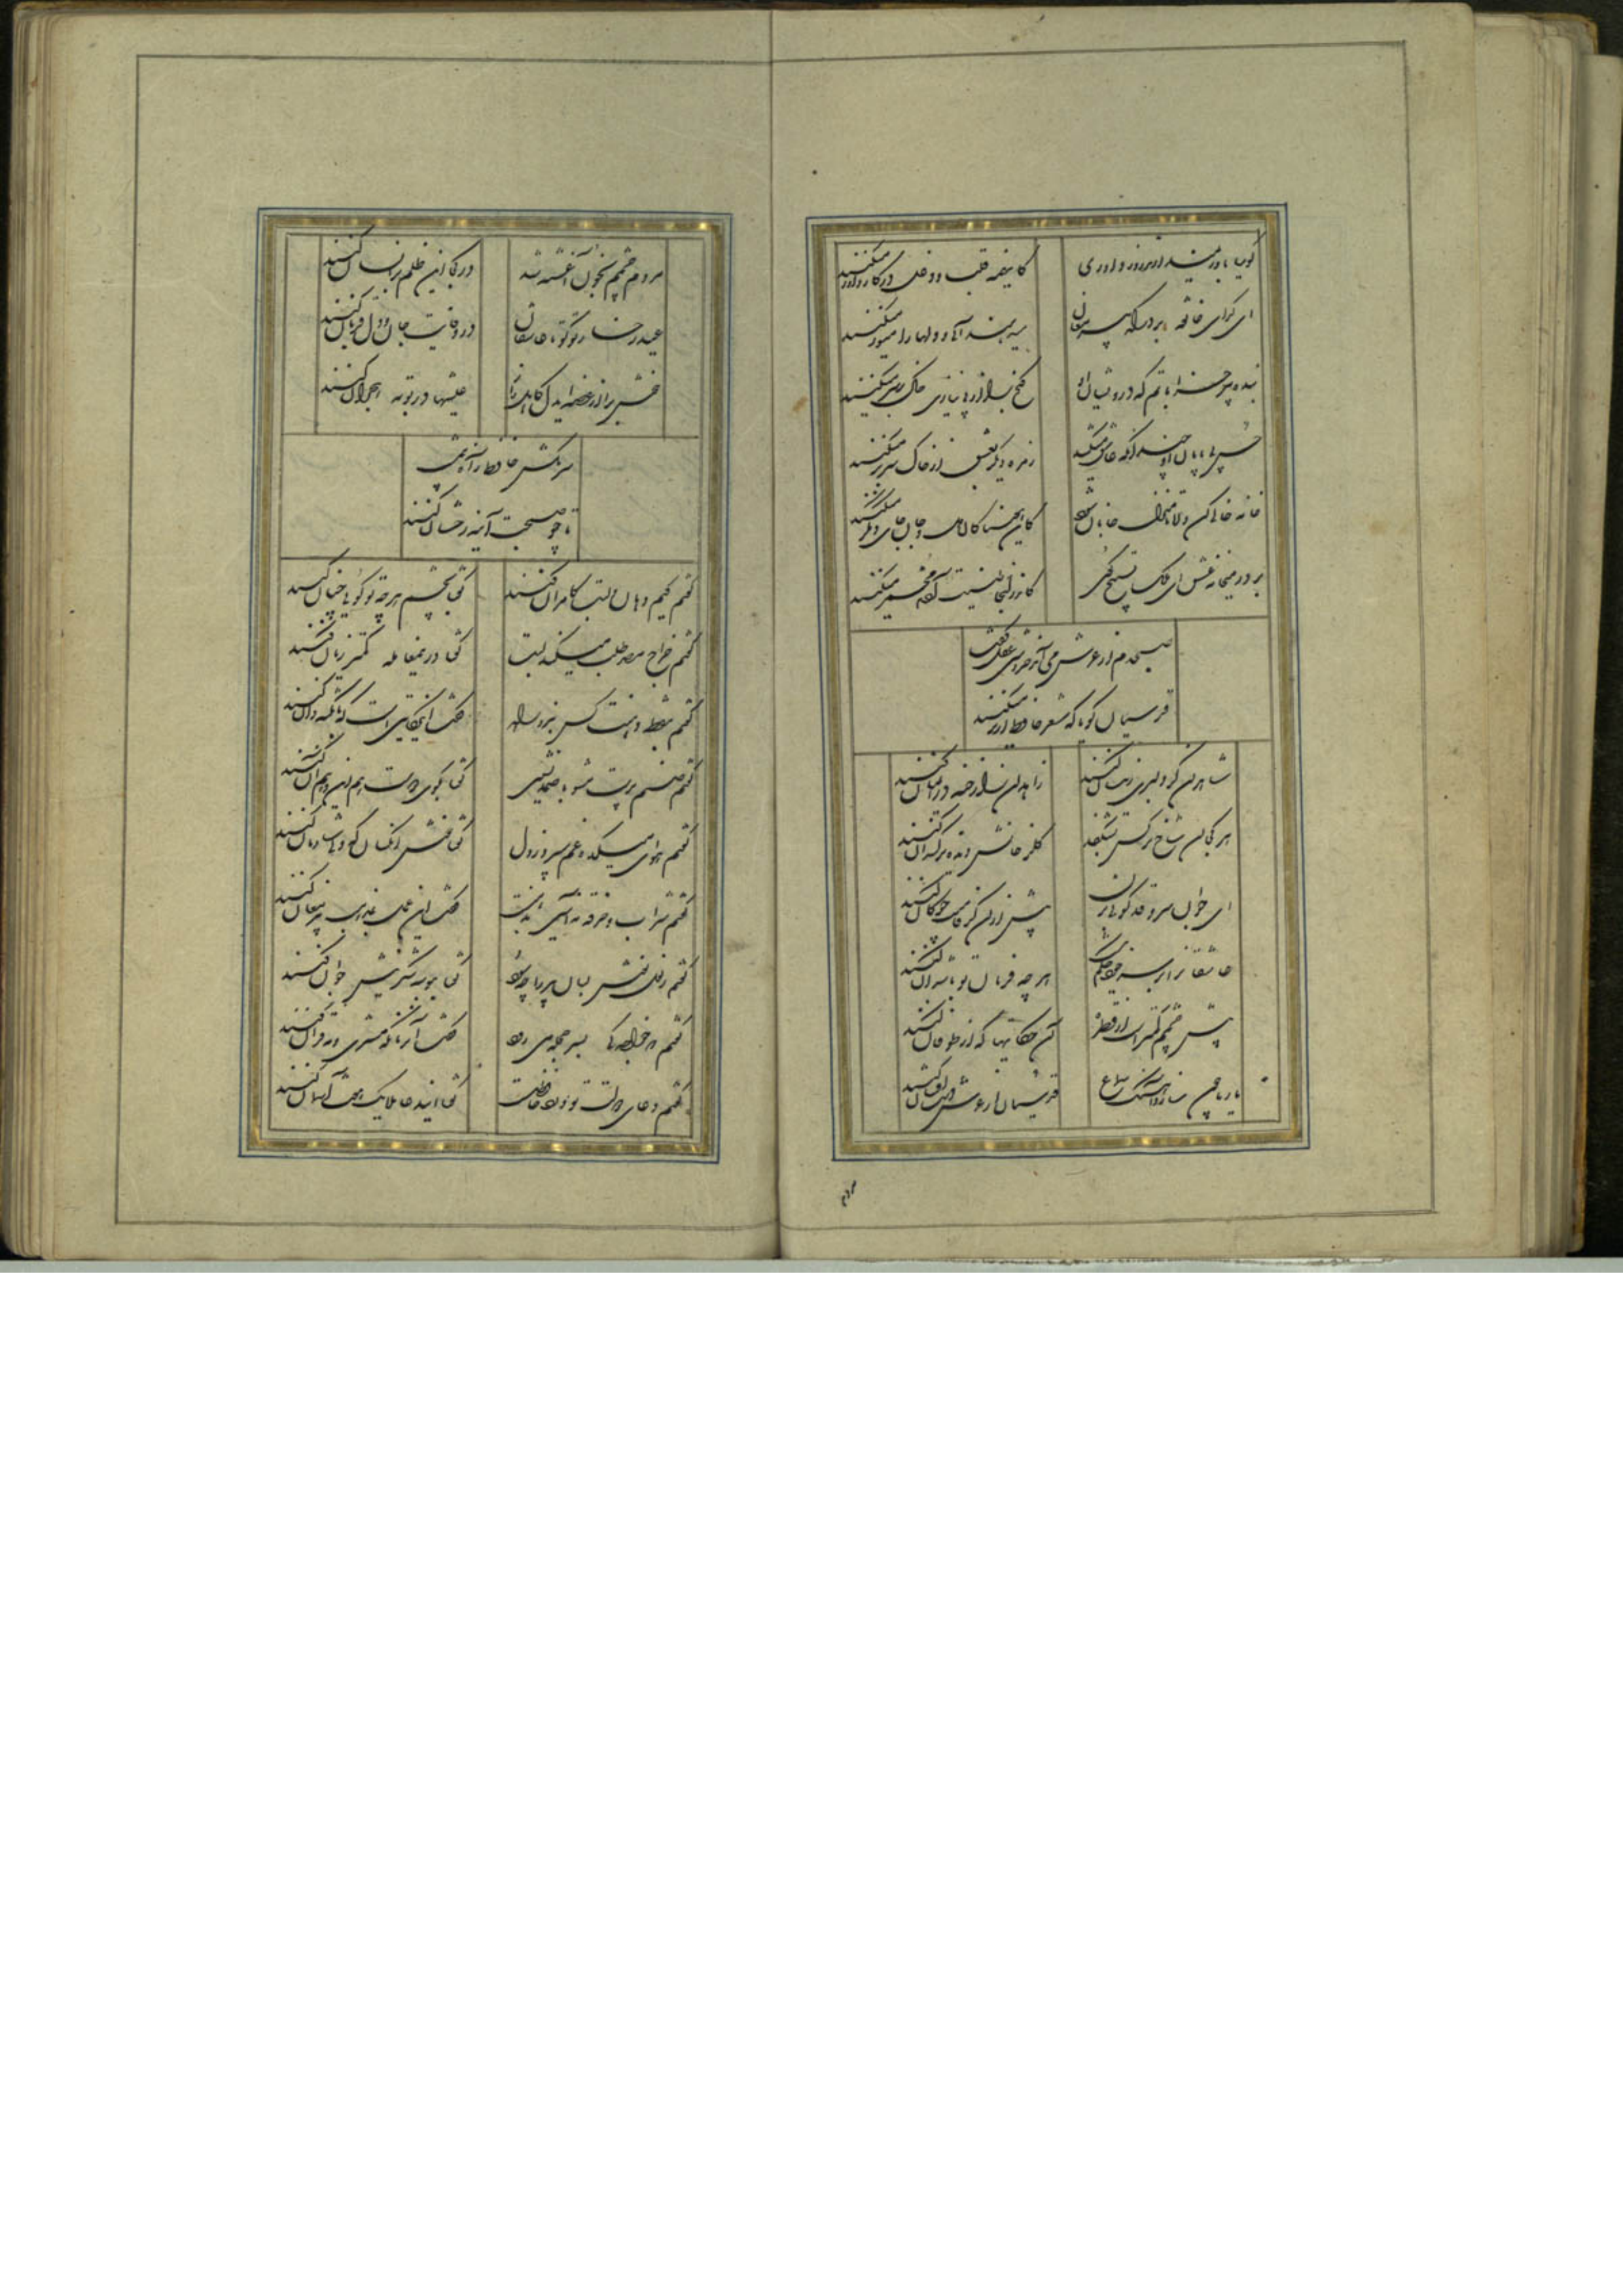 گویا باور نمیدارند روز داوری
کاینهمه قلب و دغل در کار داور میکنند
ای گدای خانقه بردر که پیر مغان
میدهند آبی و دلها را میکنند
بنده پیر خراباتم که درویشان او
گنج را از بی نیازی خاک بر سر میکنند
حسن بی پایان او چندانکه عاشق میکشد
زمره دیگر بعشق از خاک سر بر میکنند
خانه خالی کن دلا تا منزل جانان شود
کاین هوسناکان دل و جان جای دیگر میکنند
بر در میخانه عشق ای ملک تسبیح گوی
کاندر آنجا طینت آدم مخمر میکنند
صبحدم از عرش می آمد خروشی عقل گفت
قدسیان گویا که شعر حافظ از بر میکنند
شاهدان گر دلبری زینسان کنند
زاهدان را رخنه در ایمان کنند
هر کجا آن شاخ نرگس بشکفد
گلرخانش دیده نرگسدان کنند
ای جوان سرو قد گویی بزن
پیش از آن کز قامتت چوگان کنند
عاشقانرا بر سر خود حکم نیست
هر چه فرمان تو باشد آن کنند
پیش چشمم کمتر است از قطره
آن حکایتها که از طوفان کنند
یار ما چون سازد آهنگ سماع
قدسیان از عرش دست افشان کنند
مردم
مردم چشمم بخون آغشته شد
در کجا این ظلم بر انسان کنند
عید رخسار تو کو تا عاشقان
در وفایت جان و دل قربان کنند
خوش برا از غصه ایدل کاهل راز
عیشها در بوته هجران کنند
سر مکش حافظ ز آه نیم شب
تا چو صبحت آینه رخشان کنند
گفتم کیم دهان و لبت کامران کنند
گفتا بچشم هر چه تو گویی چنان کنند
گفتم خراج مصر طلب میکند لبت
گفتا درین معامله کمتر زیان کنند
گفتم بنقطه دهنت کس نبرد راه
گفت این حکایتی است که با نکته دان کنند
گفتم صنم پرست مشو با صمد نشین
گفتا بکوی عشق هم این و هم آن کنند
گفتم هوای میکده غم میبرد ز دل
گفتا خوش آنکسان که دلی شادمان کنند
گفتم شراب و خرقه نه آیین مذهبست
گفت این عمل بمذهب پیر مغان کنند
گفتم ز لعل نوش لبان پیر را چه سود
گفتا ببوسه شکرینش جوان کنند
گفتم که خواجه کی بسر حجله می رود
گفت آن زمان که مشتری و مه قران کنند
گفتم دعای دولت تو ورد حافظست
گفتا این دعا ملایک هفت آسمان کنند